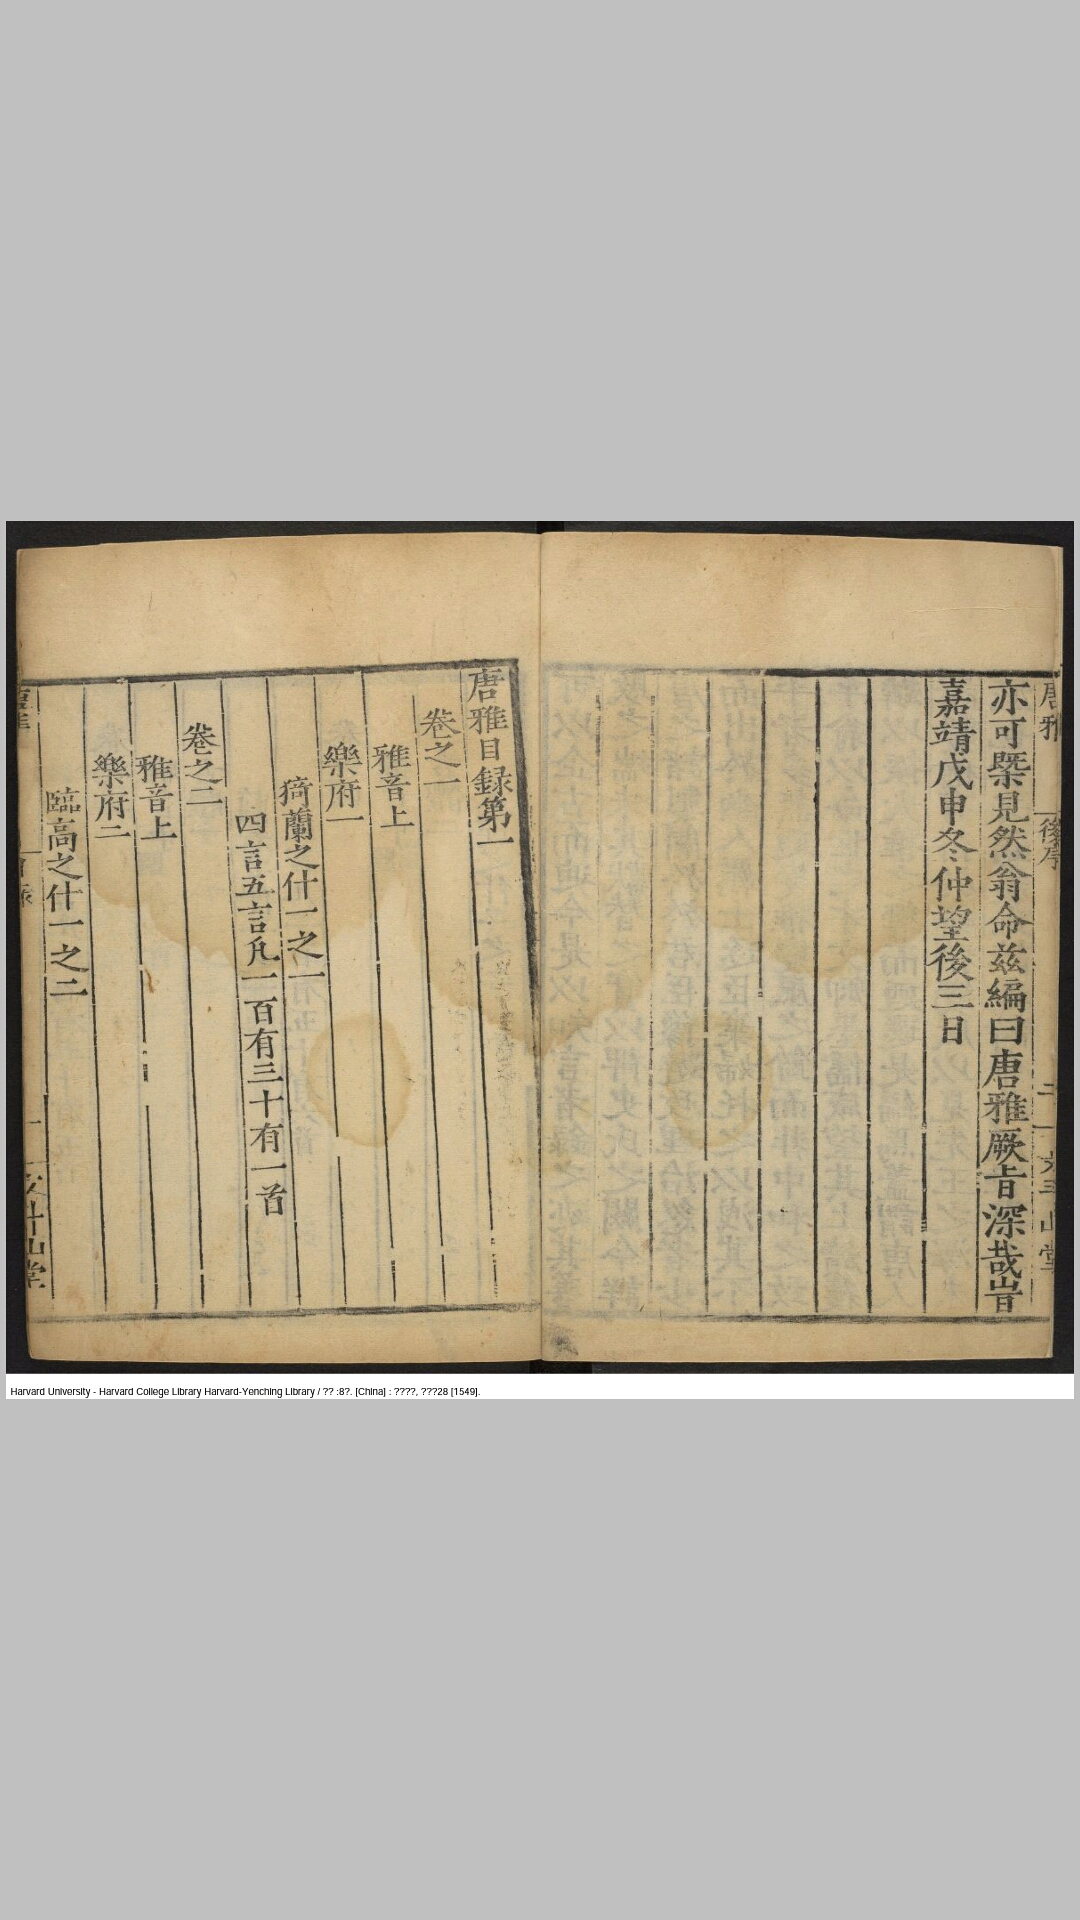 唐雅
後序
亦可槩見然翁命兹編曰唐雅厥旨深哉旹
嘉靖戊申冬仲望後三日
唐雅目録第一
卷之一
雅音上
樂府一
猗蘭之什一之一
四言五言凡一百有三十有一首
卷之二
雅音上
樂府二
臨高之什一之二
山堂
Harvard University - Harvard College Library Harvard-Yenching Library / ?? :8?. [China] : ????, ???28 [1549].